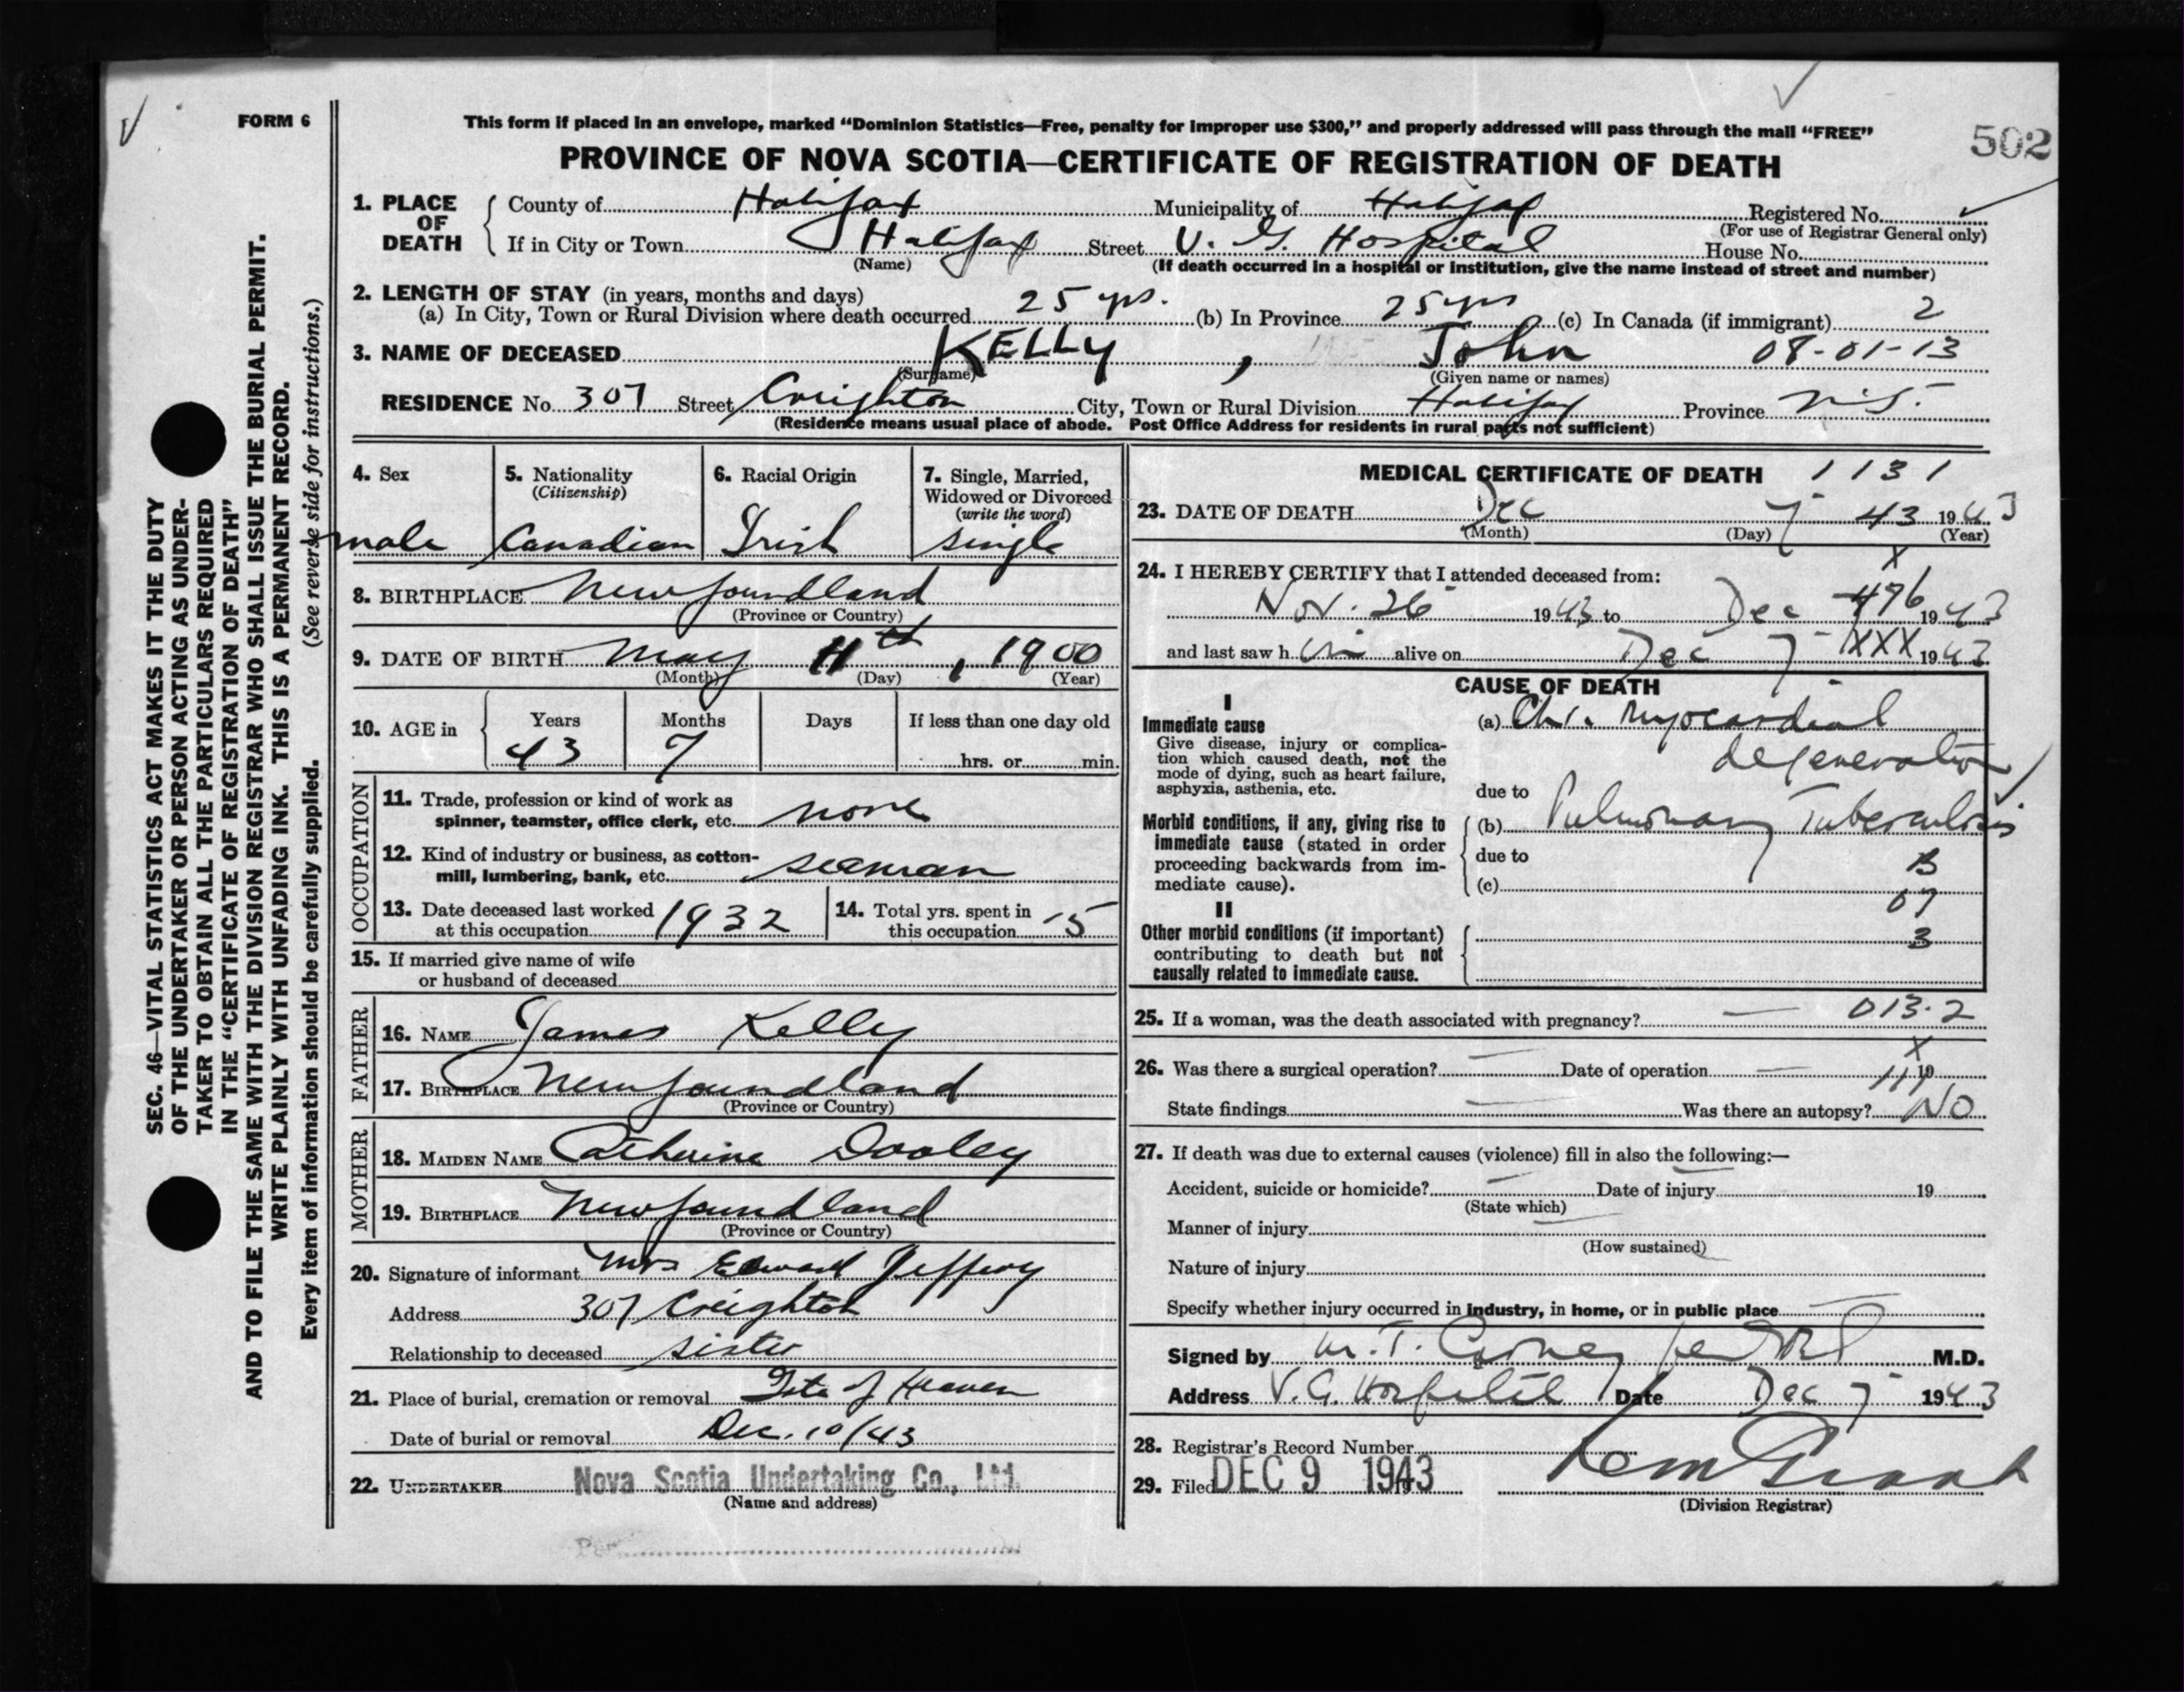 FORM 6
This form if placed in an envelope, marked “Dominion Statistics—Free, penalty for improper use $300,” and properly addressed will pass through the mail “FREE”
502
PROVINCE OF NOVA SCOTIA—CERTIFICATE OF REGISTRATION OF DEATH
1. PLACE OF DEATH
County of Halifax Municipality of Halifax Registered No.
(For use of Registrar General only)
If in City or Town Halifax Street V. G. Hospital House No.
(Name) (If death occurred in a hospital or institution, give the name instead of street and number)
2. LENGTH OF STAY (in years, months and days)
(a) In City, Town or Rural Division where death occurred 25 yrs. (b) In Province 25 yrs (c) In Canada (if immigrant) 2
3. NAME OF DECEASED KELLY, John 08-01-13
(Surname) (Given name or names)
RESIDENCE No. 307 Street Creighton City, Town or Rural Division Halifax Province N.S.
(Residence means usual place of abode. Post Office Address for residents in rural parts not sufficient)
4. Sex
male
5. Nationality
(Citizenship)
Canadian
6. Racial Origin
Irish
7. Single, Married,
Widowed or Divorced
(write the word)
single
8. BIRTHPLACE Newfoundland
(Province or Country)
9. DATE OF BIRTH May 11th, 1900
(Month) (Day) (Year)
10. AGE in
Years Months Days If less than one day old
43 7 hrs. or min.
OCCUPATION
11. Trade, profession or kind of work as
spinner, teamster, office clerk, etc. none
12. Kind of industry or business, as cotton-
mill, lumbering, bank, etc. seaman
13. Date deceased last worked
at this occupation 1932
14. Total yrs. spent in
this occupation 5
15. If married give name of wife
or husband of deceased
FATHER
16. NAME James Kelly
17. BIRTHPLACE Newfoundland
(Province or Country)
MOTHER
18. MAIDEN NAME Catherine Dooley
19. BIRTHPLACE Newfoundland
(Province or Country)
20. Signature of informant Mrs Edward Jeffery
Address 307 Creighton
Relationship to deceased sister
21. Place of burial, cremation or removal Gate of Heaven
Date of burial or removal Dec. 10/43
22. UNDERTAKER Nova Scotia Undertaking Co., Ltd.
(Name and address)
Per
MEDICAL CERTIFICATE OF DEATH 1131
23. DATE OF DEATH Dec 7 43 1943
(Month) (Day) (Year)
X
24. I HEREBY CERTIFY that I attended deceased from:
Nov. 26 1943 to Dec 496 1943
and last saw h im alive on Dec 7 XXX 1943
CAUSE OF DEATH
I
Immediate cause
Give disease, injury or complica-
tion which caused death, not the
mode of dying, such as heart failure,
asphyxia, asthenia, etc.
(a) Chr. Myocardial
degeneration
due to
Morbid conditions, if any, giving rise to
immediate cause (stated in order
proceeding backwards from im-
mediate cause).
(b) Pulmonary Tuberculosis
due to B
(c)
07
II
Other morbid conditions (if important)
contributing to death but not
causally related to immediate cause.
3
25. If a woman, was the death associated with pregnancy? — 013.2
X
26. Was there a surgical operation? — Date of operation — 19
State findings — Was there an autopsy? NO
27. If death was due to external causes (violence) fill in also the following:—
Accident, suicide or homicide? Date of injury 19
(State which)
Manner of injury
(How sustained)
Nature of injury
Specify whether injury occurred in industry, in home, or in public place
Signed by M.D.
Address V. G. Hospital Date Dec 7 1943
28. Registrar's Record Number
29. Filed DEC 9 1943
(Division Registrar)
SEC. 46—VITAL STATISTICS ACT MAKES IT THE DUTY
OF THE UNDERTAKER OR PERSON ACTING AS UNDER-
TAKER TO OBTAIN ALL THE PARTICULARS REQUIRED
IN THE “CERTIFICATE OF REGISTRATION OF DEATH”
AND TO FILE THE SAME WITH THE DIVISION REGISTRAR WHO SHALL ISSUE THE BURIAL PERMIT.
WRITE PLAINLY WITH UNFADING INK. THIS IS A PERMANENT RECORD.
Every item of information should be carefully supplied. (See reverse side for instructions.)